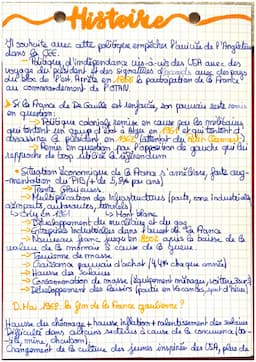 Histoire
Il souhaite avec cette politique empêcher l'arrivée de l'Angleterre
dans la CEE.
→ Politique d'indépendance vis-à-vis des USA avec des
voyages du président et des signatures d'accords avec des pays
du bloc de l'Est. Arrête en 1966 la participation de la France au
commandement de l'OTAN.
> Si la France de De Gaulle est renforcée, son pouvoir reste remis
en question:
→ Politique coloniale remise en cause par les militaires
qui tentent un coup d'état à Alger en 1961 et qui tentent d'
assassiner le président en 1962 (attentat du Petit-Clamart).
→ Remise en question par l'opposition de gauche qui lui
reproche de trop utiliser le référendum
• Situation économique de la France s'améliore, forte aug-
mentation du PIB (+ de 5,5% par ans)
→ Trente Glorieuses
→ Multiplication des Infrastructures (ports, zones industrielles,
aéroports, autoroutes, tunnels)
↳ Orly en 1961 ↳ Mont blanc
→ Développement du nucléaire et du gaz
→ Entreprises Industrielles dans l'ouest de la France
→ Nouveau franc jusqu'en 2002 après la baisse de la
valeur de la monnaie à cause de la guerre
→ Tourisme de masse
→ Croissance pouvoir d'achat (4,4% chaque année)
→ Hausse des Salaires
→ Consommation de masse (équipement ménager, voiture...)
→ Développement des loisirs
D. Mai 1968: la fin de la France gaullienne?
Hausse du chômage + hausse inflation + ralentissement des salaires
Difficulté dans certains secteurs à cause de la concurrence (tex-
tile, mine, charbon)
Changement de la culture des jeunes inspirées des USA, plus de